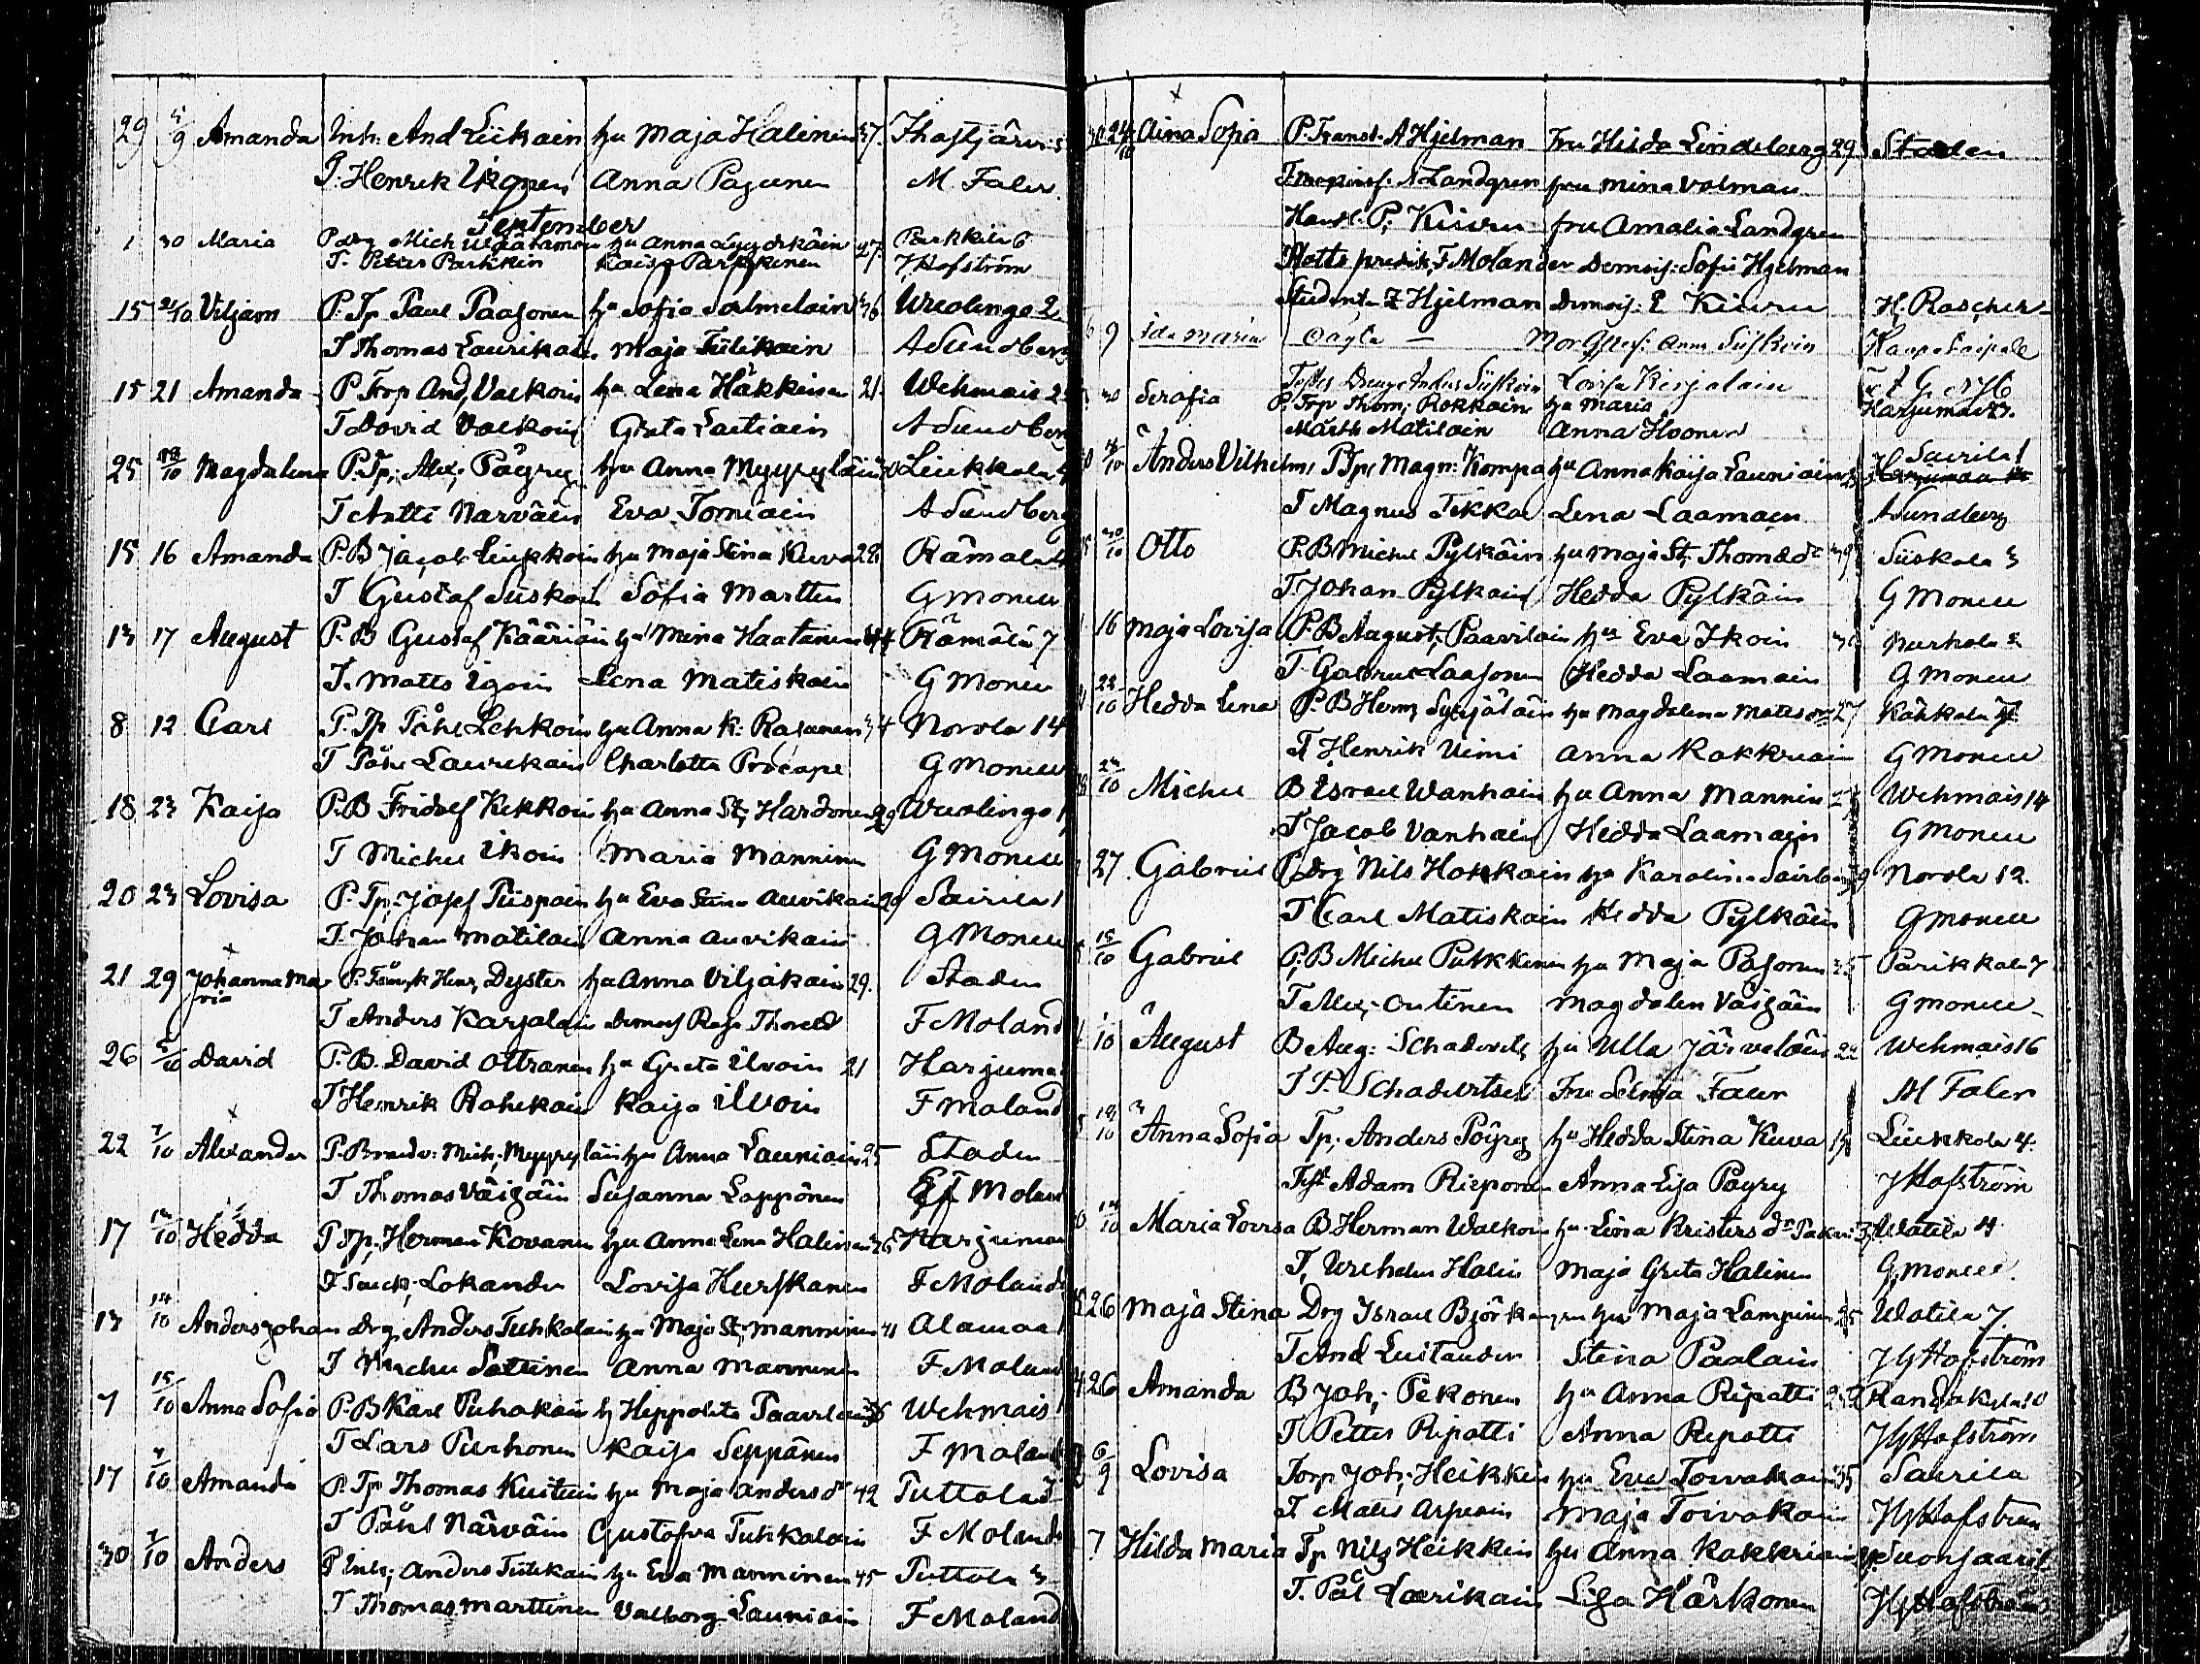 29 5/9 Amanda Inh: And Liikain hu Maja Halinen 37. Ihaftjärvi 5
T. Henrik Ikonen Anna Pasunen M. Faler
September
1 30 Maria P. drg Mich hu Anna Lyydikäin 27. Parkkila 6
T. Petter Parkkin Kaisa Parkkinen J Hofström
15 21/10 Viljam P. Tp Paul Paasonen hu Sofia Salmelain 36 Wuolingo 2
T Thomas Laurikain Maja Tulikain A Sundberg
15 21 Amanda P Torp And, Valkoin hu Lena Häkkinen 21. Wehmais 2
T David Valkoin Greta Laitiain A Sundberg
25 18/10 Magdalena P. Tp, Alex; Pöyry hu Anna Myyryläin Liukkola 4
T Antti Narväin Eva Torniain A Sundberg
15 16 Amanda P. B Jacob Liukkoin hu Maja Stina Kuva 28 Rämälä
T Gustaf Siiskoin Sofia Marttin G Moneu
13 17 August P. B Gustaf Kääriäin hu Mina Haatanen 44 Rämälä 7
T. Matts Igoin Lena Matiskain G Moneu
8 12 Carl P. Tp Påhl Lehkoin hu Anna K: Rasunen 34 Norola 14
T Påhl Laurikain Charlotta Procopé G Moneu
18 23 Kaija P. B Fridolf Kekkoin hu Anna St; Hardonen 29 Wuolingo 1
T Michel Ikoin Maria Manninen G Moneu
20 23 Lovisa P. Tp, Josef Piispain hu Eva Stina Auvikain 29 Sairila 1
T. Johan Matilain Anna Auvikain G Moneu
21 29 Johanna Maria P. Henr, Dyster hu Anna Viljakain 29. Staden
T Anders Karjalain Demois Rosa Thoreld F Moland
26 5/10 David P. B. David Ottranen hu Greta Ilvoin 21 Harjuma
T Henrik Rahikain Kaija Ilvoin F Moland
22 7/10 Alexander P. Brandv: Mich; Myyryläin hu Anna Launiain 25 Staden
T Thomas Väisäin Susanna Lappönen F Moland
17 12/10 Hedda P Tp; Herman Kovanen hu Anna Lena Halinen 36 Harjumaa
T Lokander Lovisa Hurskanen F Moland
13 14/10 Anders Johan Drg, Anders Tuhkalain hu Maja St; Manninen 41 Alamaa 1
T Michel Anna Manninen F Moland
7 15/10 Anna Sofia P. B Karl Puhakain hu Hippolita Paavilain 36 Wehmais 1
T Lars Purhonen Kaija Seppänen F Moland
17 7/10 Amanda P. Tp Thomas Kuitiin hu Maja Anders dr 42 Tuttola
T Påhl Närväin Gustafva Tuhkalain F Moland
30 7/10 Anders P Inh; Anders Tiitikain hu Eva Manninen 45 Tuttola 3
T Thomas Marttinen Valborg Launiain F Moland
24/10 Aina Sofia P. Transl. A Hjelman Fru Hilda Lindeberg 29 Staden
A Landgren fru Mina Volman
Handl. P; Kiseru fru Amalia Landgren
F Molander Demois: Sofie Hjelman
Student Z Hjelman Demois: E Kiseru H; Roschier
6 9 Ida Maria Oägta Mor Gftesf: Anna Siiskoin
Testes Dreng Anders Siiskoin Lovisa Kirjalain
30 Serafia P. Torp Thom; Rokkain hu Maria Harjumaa 23.
Märth Matilain Anna Hvonen
4/10 Anders Vilhelm P Tp; Magn: Kompa hu Anna Kaija Launiain Sairila 1
T Magnus Tikka Lena Laamain A Sundberg
30/10 Otto P. B Michel Pylkäin hu Maja St; Thoms dr 39 Siiskola 3
T Johan Pylkäin Hedda Pylkäin G Moneu
16 Maja Lovisa P. B August; Paavilain hu Eva Ikoin Nurhola 2
T Gabriel Laasonen Hedda Laamain G Moneu
22/10 Hedda Lena P. B Herm, Syrjäläin hu Magdalena Mats dr 27 Kähkälä
T Henrik Vimi Anna Kakkriain G Moneu
23/10 Michel B Israel Wanhain hu Anna Mannin Wehmais 14
T Jacob Vanhain Hedda Laamain G Moneu
27 Gabriel P. drg Nils Hokkain hu Karolina Norola 12.
T Carl Matiskain Hedda Pylkäin G Moneu
15/10 Gabriel P. B Michel Putkkinen hu Maja Pasonen 35 Parikkala 7
T Alex; Outinen Magdalen Väisäin G Moneu
1/10 August B Aug: Schadevitz hu Ulla Järveläin 22 Wehmais 16
T P. Schadevitsch Fru Selma Faler M Faler
13/10 Anna Sofia Tp; Anders Pöyry hu Hedda Stina Kuva 19 Liukkola 4.
Test Adam Rieponen Anna Lisa Pöyry J Hofström
14/10 Maria Lovisa B Herman Walkoin hu Lena Kristers dr Watila 4
T, Wilhelm Halin Maja Greta Halinen G Moneu.
26 Maja Stina Drg Israel Björkmgren hu Maja Lampinen 25 Watila 7.
T And Luitander Stina Paalain J H Hofström
26 Amanda B Joh; Pekonen hu Anna Ripatti 22 Randakylä 10
T Petter Ripatti Anna Ripatti J H Hofström
6/9 Lovisa Torp Joh; Heikkin hu Eva Toivakain 35 Sairila
T Matts Arpiain Maja Toivakain J H Hofström
7 Hilda Maria Tp Nils Heikkin hu Anna Kakkriain Suonsaari
T. Pål Laurikain Lisa Härkonen J H Hofström